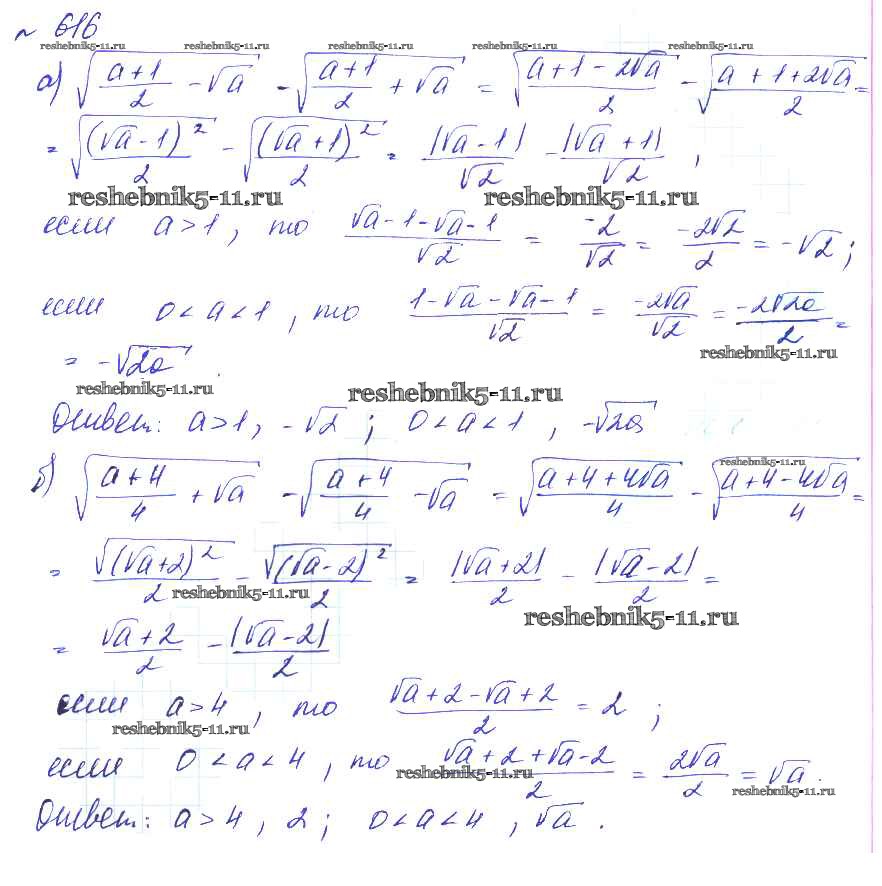 № 616
reshebnik5-11.ru reshebnik5-11.ru reshebnik5-11.ru reshebnik5-11.ru reshebnik5-11.ru
а) √((a+1)/2 - √a) - √((a+1)/2 + √a) = √((a+1-2√a)/2) - √((a+1+2√a)/2) =
= √((√a-1)²/2) - √((√a+1)²/2) = |√a-1|/√2 - |√a+1|/√2 ,
reshebnik5-11.ru reshebnik5-11.ru
если a>1, то (√a-1-√a-1)/√2 = -2/√2 = -2√2/2 = -√2;
если 0<a<1, то (1-√a-√a-1)/√2 = -2√a/√2 = -2√2a/2 =
reshebnik5-11.ru
= -√2a .
reshebnik5-11.ru reshebnik5-11.ru
Ответ: a>1, -√2; 0<a<1, -√2a
reshebnik5-11.ru
б) √((a+4)/4 + √a) - √((a+4)/4 - √a) = √((a+4+4√a)/4) - √((a+4-4√a)/4) =
= √(√a+2)²/2 - √(√a-2)²/2 = |√a+2|/2 - |√a-2|/2 =
reshebnik5-11.ru reshebnik5-11.ru
= (√a+2)/2 - |√a-2|/2
если a>4, то (√a+2-√a+2)/2 = 2;
reshebnik5-11.ru
если 0<a<4, то (√a+2+√a-2)/2 = 2√a/2 = √a.
reshebnik5-11.ru reshebnik5-11.ru
Ответ: a>4, 2; 0<a<4, √a.